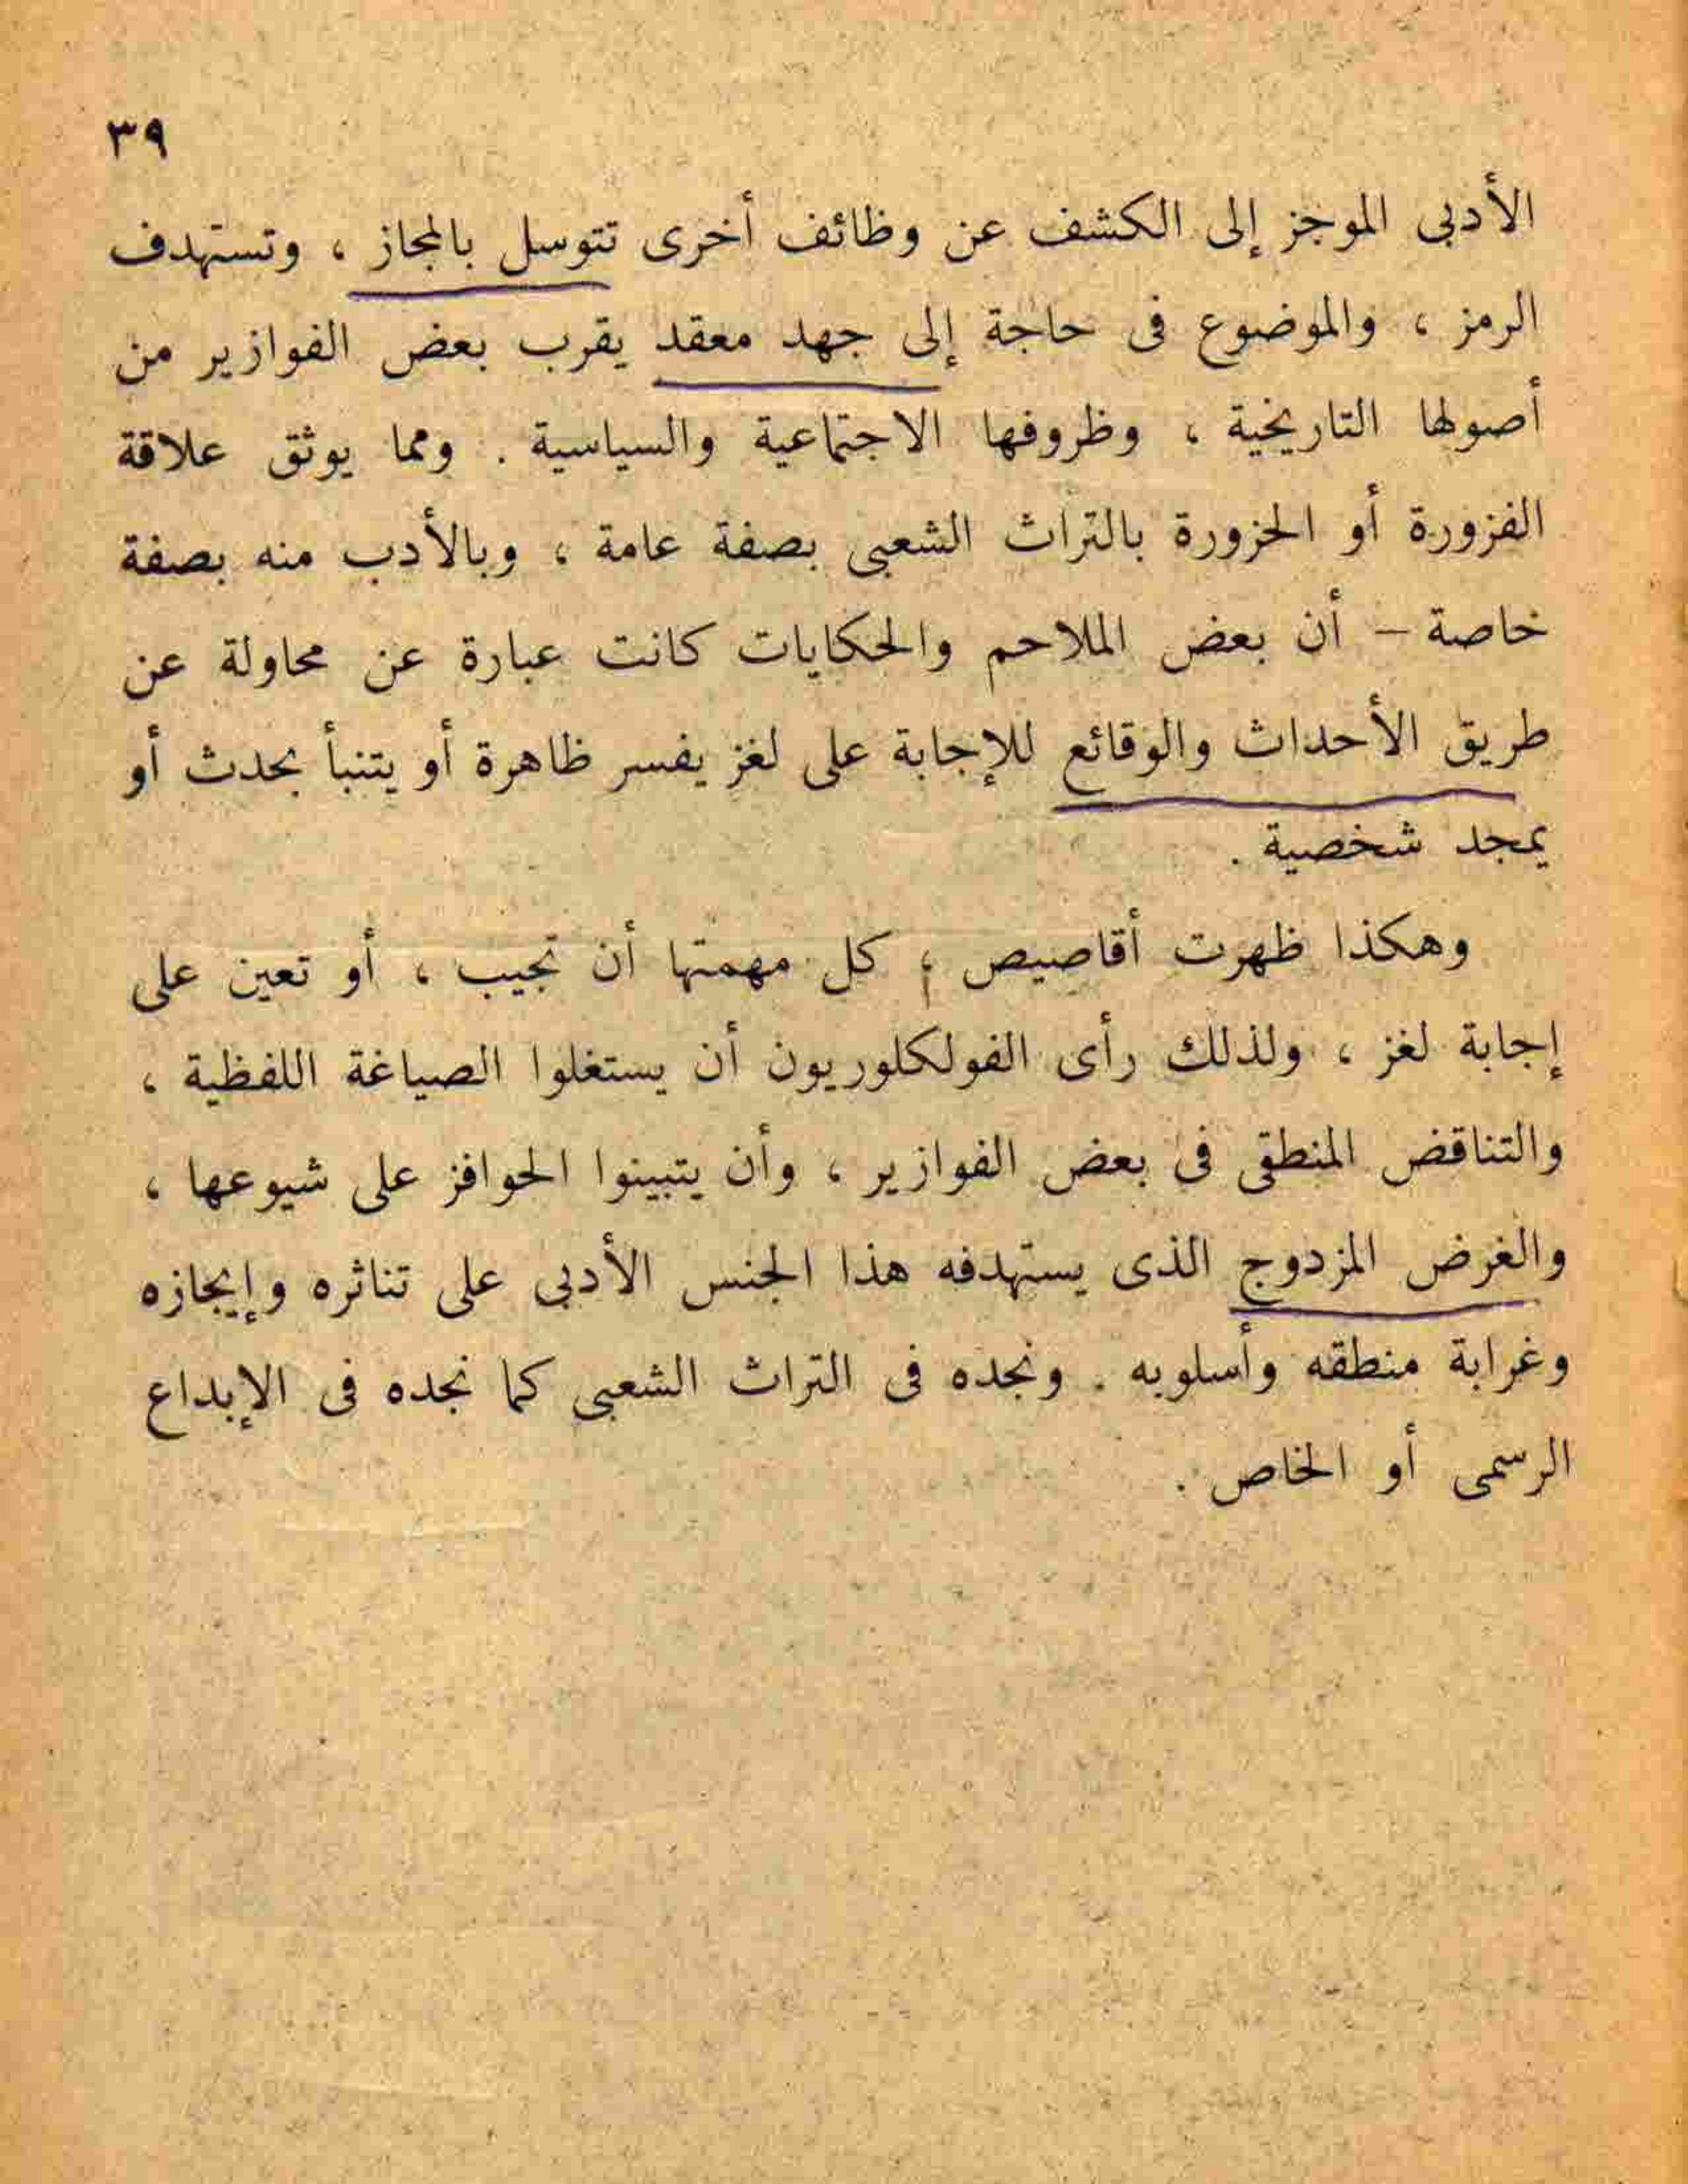 ٣٩
الأدبى الموجز إلى الكشف عن وظائف أخرى تتوسل بالمجاز ، وتستهدف
الرمز ، والموضوع فى حاجة إلى جهد معقد يقرب بعض الفوازير من
أصولها التاريخية ، وظروفها الاجتماعية والسياسية . ومما يوثق علاقة
الفزورة أو الحزورة بالتراث الشعبى بصفة عامة ، وبالأدب منه بصفة
خاصة – أن بعض الملاحم والحكايات كانت عبارة عن محاولة عن
طريق الأحداث والوقائع للإجابة على لغز يفسر ظاهرة أو يتنبأ بحدث أو
يمجد شخصية .
وهكذا ظهرت أقاصيص ، كل مهمتها أن تجيب ، أو تعين على
إجابة لغز ، ولذلك رأى الفولكلوريون أن يستغلوا الصياغة اللفظية ،
والتناقض المنطقى فى بعض الفوازير ، وأن يتبينوا الحوافز على شيوعها ،
والغرض المزدوج الذى يستهدفه هذا الجنس الأدبى على تناثره وإيجازه
وغرابة منطقه وأسلوبه . ونجده فى التراث الشعبى كما نجده فى الإبداع
الرسمى أو الخاص .